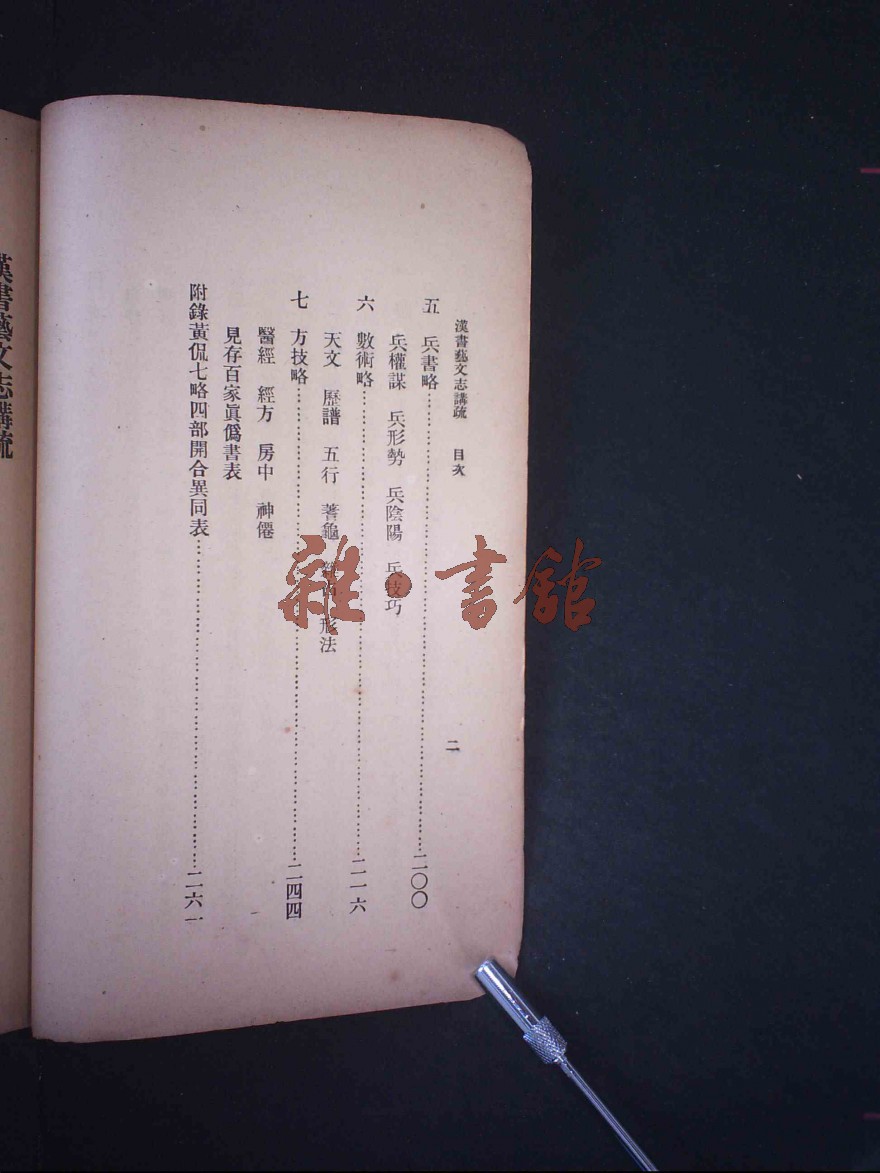 漢書藝文志講疏　目次　二
五　兵書略……二〇〇
兵權謀　兵形勢　兵陰陽　兵技巧
六　數術略……二一六
天文　歷譜　五行　蓍龜　形法
七　方技略……二四四
醫經　經方　房中　神僊
見存百家眞僞書表
附錄黃侃七略四部開合異同表……二六一
漢書藝文志講疏
雜·書館